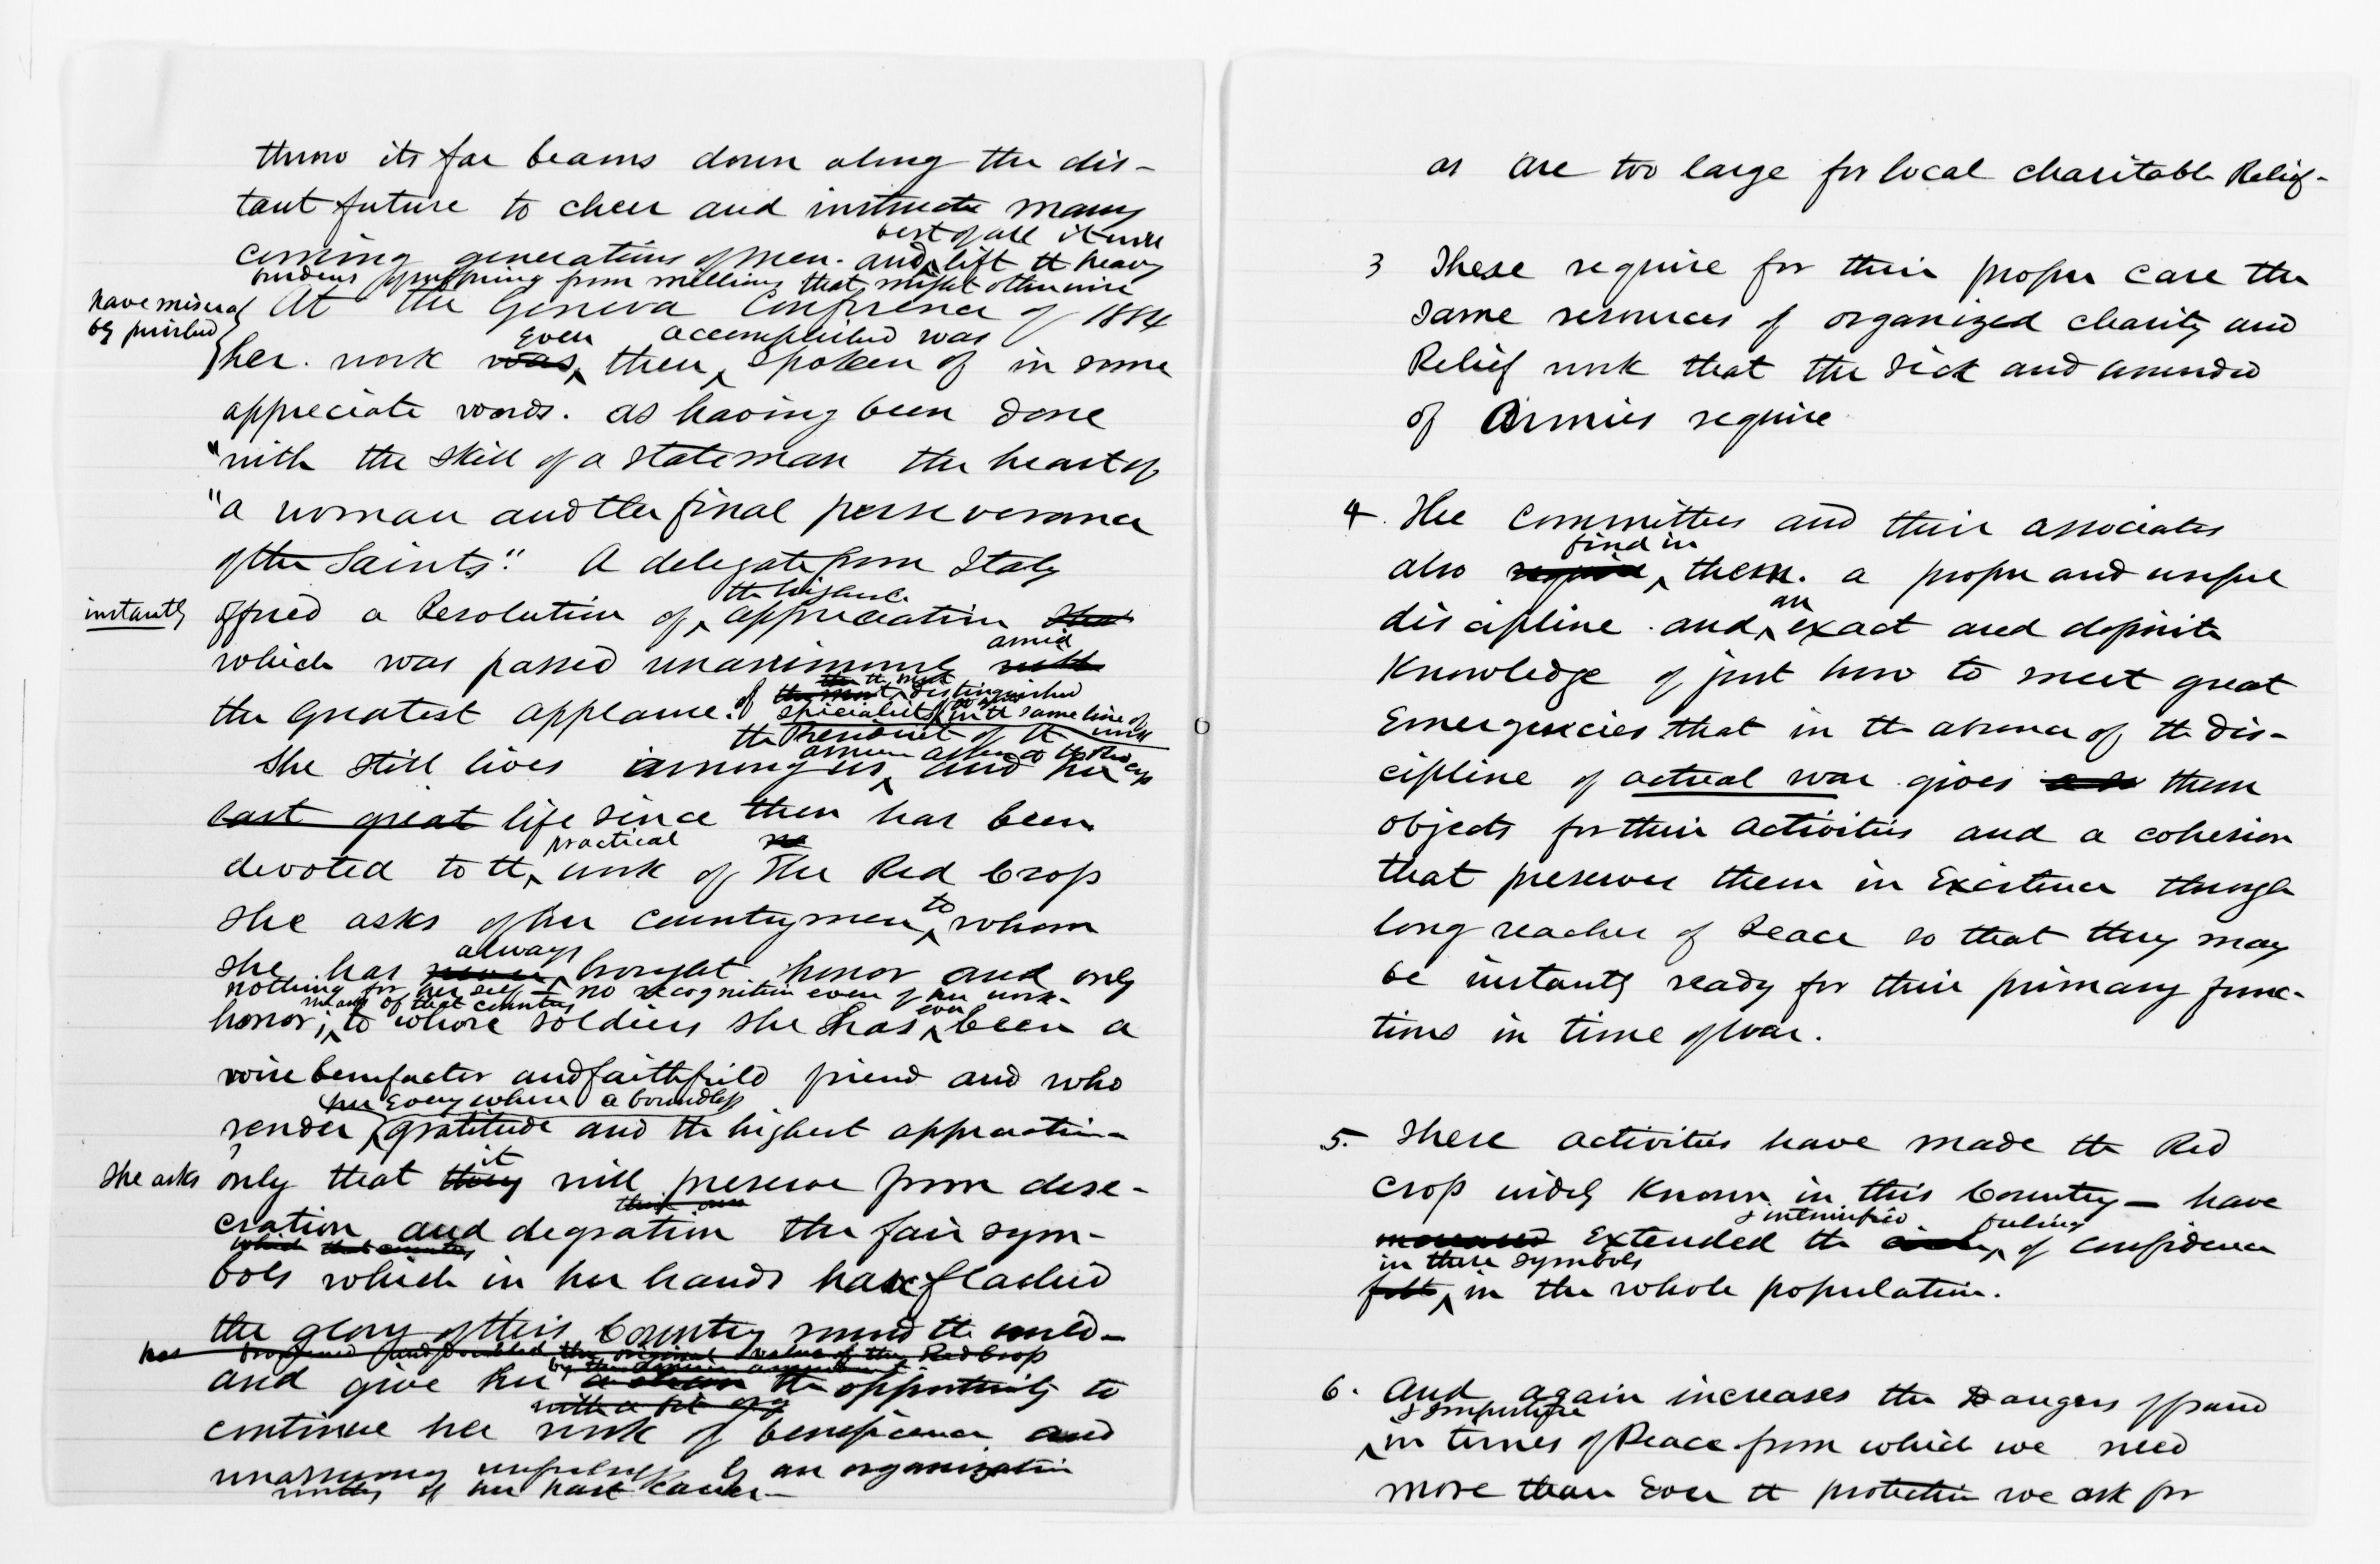 throw its far beams down along the dis-
tant future to cheer and instruct many
best of all it will
coming generations of men. and lift the heavy
burdens of suffering from millions that might otherwise
have misera
bly perished
At the Geneva Conference of 1884
even accomplished was
her work was then spoken of in some
appreciate words. as having been done
"with the skill of a stateman the heart of
"a woman and the final perseverance
of the Saints." A delegate from Italy
the highest
instantly offered a Resolution of appreciation
amid
which was passed unanimously with
the most
of the most distinguished
the greatest applause.
specialists in the same line of work
the President of the
She still lives among us and her
last great life since then has been
practical
devoted to the work of The Red Cross
to
She asks of her countrymen whom
always
she has never brought honor and only
nothing for her self no recognition even of her work.
means of that country
honor; to whose soldiers she has been a
ever
wise benefactor and faithfull friend and who
her Everywhere a boundless
render gratitude and the highest appreciation
it
She asks only that they will preserve from dese-
cration and degration the fair sym-
which that country
bols which in her hands have flashed
the glory of this Country round the world-
has broadened and doubled the original value of the Red Cross
by the American amendment
and give her the opportunity to
with a bit of
continue her work of beneficence and
unassuming unselfishness by an organization
worthy of her past career-
as are too large for local charitable Relief-
3 These require for their proper care the
same resources of organized charity and
Relief work that the sick and wounded
of Armies require
4. The Committees and their associates
find in
also require them. a proper and useful
an
discipline. and exact and definite
Knowledge of just how to meet great
Emergencies that in the absence of the dis-
cipline of actual war gives them
objects for their activities and a cohesion
that preserves them in Existence through
long reaches of Peace so that they may
be instantly ready for their primary func-
tions in time of war.
5. These activities have made the Red
Cross widely Known in this Country — have
& intensified feeling
increased Extended the of confidence
in these symbols
felt in the whole population.
6. And again increases the Dangers of fraud
& imposture
in times of Peace from which we need
more than Ever the protection we ask for